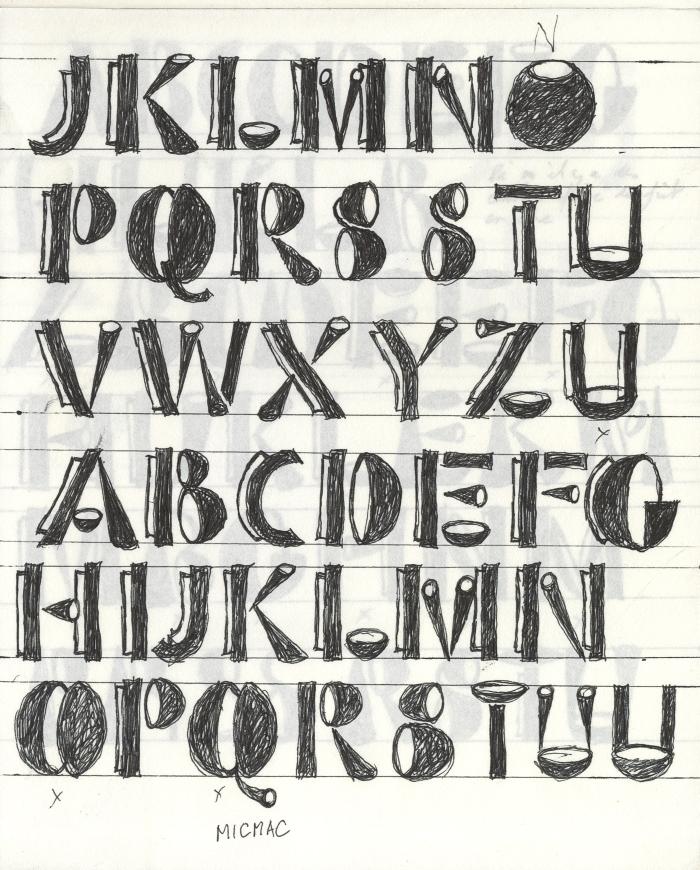 N
JKLMNO
PQRSSTU
VWXYZU
x
ABCDEFG
HIJKLMN
OPQRSTUU
x x
MICMAC